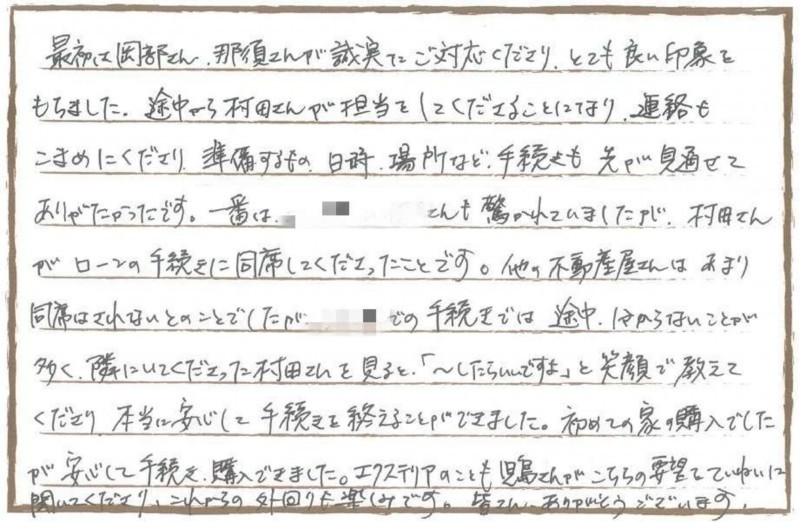 最初は岡部さん、那須さんが誠実にご対応くださり、とても良い印象を
もちました。途中から村田さんが担当をしてくださることになり、連絡も
こまめにくださり、準備するもの、日時、場所など、手続きも先が見通せて
ありがたかったです。一番は、 さんも驚かれていましたが、村田さん
がローンの手続きに同席してくださったことです。他の不動産屋さんはあまり
同席はされないとのことでしたが での手続きでは途中、分からないことが
多く、隣にいてくださった村田さんを見ると、「〜したらいいですよ」と笑顔で教えて
くださり、本当に安心して手続きを終えることができました。初めての家の購入でした
が安心して手続き、購入できました。エクステリアのことも児島さんがこちらの要望をていねいに
聞いてくださり、これからの外回りも楽しみです。皆さん、ありがとうございます。